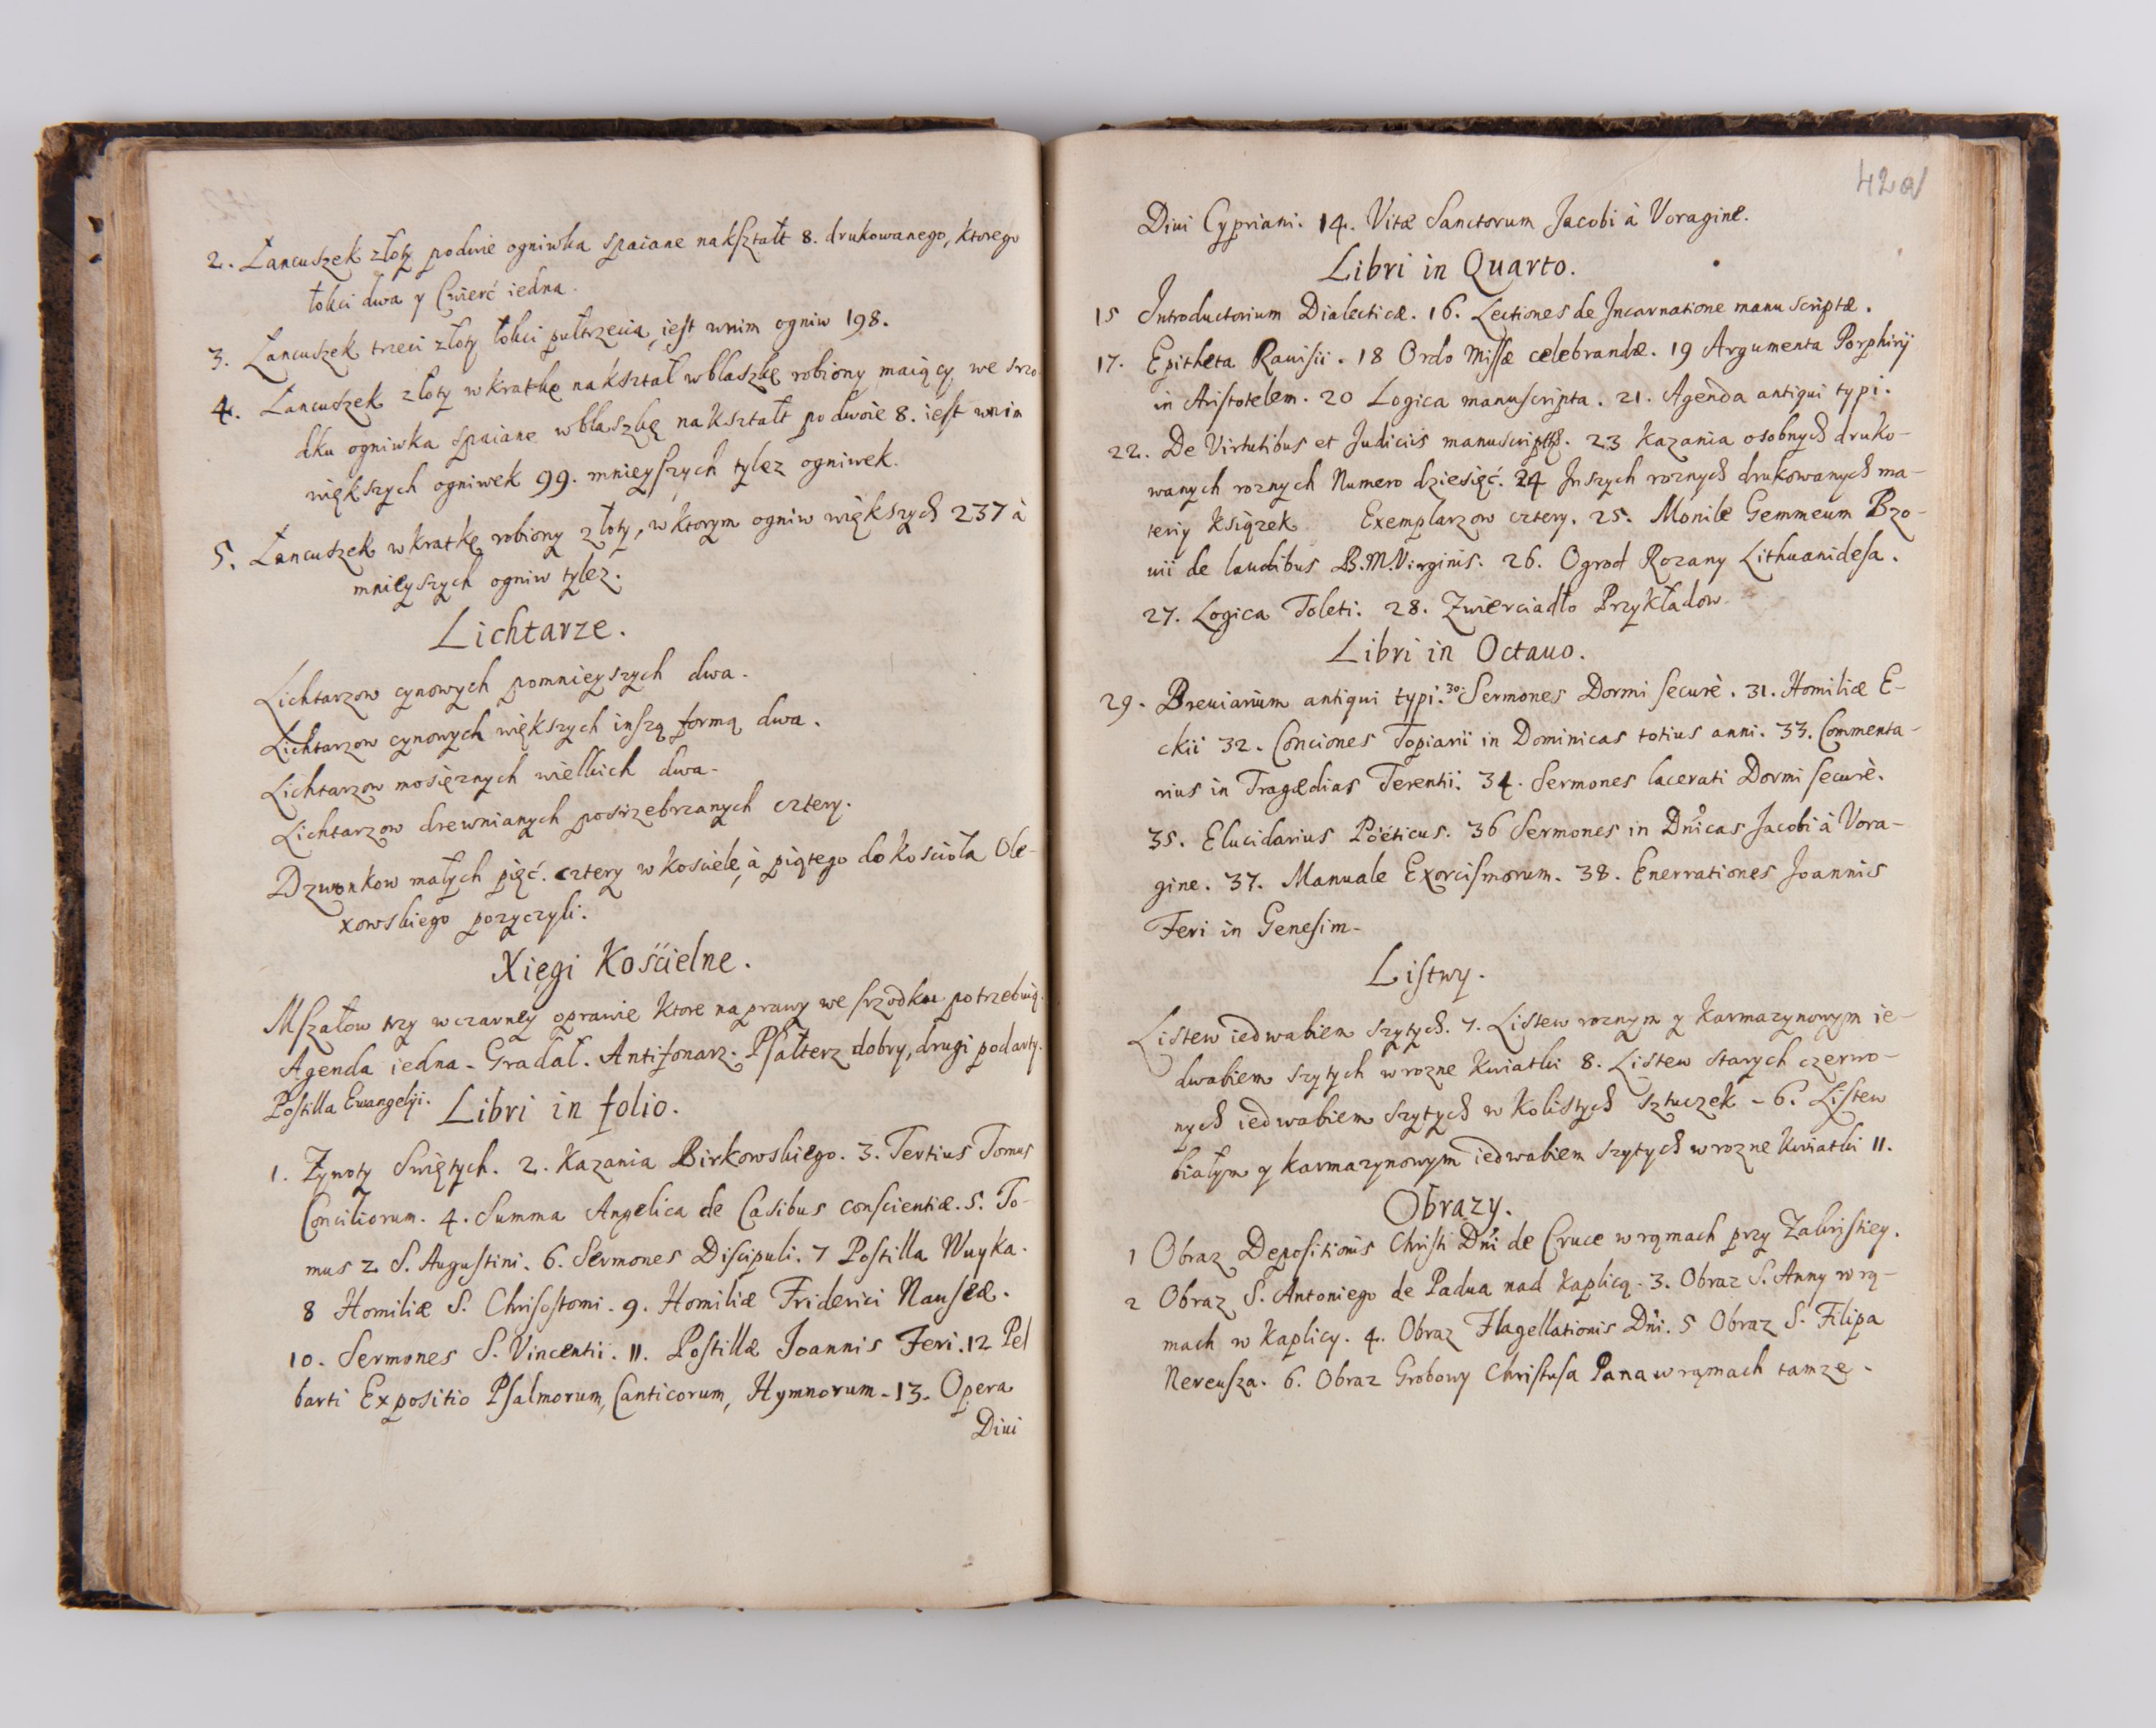 2. Łancuszek złoty podwie ogniwka spaiane nakſztałt 8. drukowanego, ktorego
łokci dwa y Cwierć iedna.
3. Łancuszek trzeci złoty łokci pułtrzecia, ieſt wnim ogniw 198.
4. Łancuszek złoty w kratkę nakształ wblaszkę robiony maiący we srzo
dku ogniwka spaiane wblaszkę nakształt podwoie 8. ieſt wnim
większych ogniwek 99. mnieyſzych tylez ogniwek.
5. Łancuszek w kratkę robiony złoty, w ktorym ogniw większych 237 à
mnieyszych ogniw tylez.
Lichtarze.
Lichtarzow cynowych pomnieyszych dwa.
Lichtarzow cynowych większych inſzą formą dwa.
Lichtarzow mosięznych wielkich dwa.
Lichtarzow drewnianych posrzebrzanych cztery.
Dzwonkow małych pięć. cztery w kosciele, à piątego do koscioła Ole-
xowskiego pozyczyli.
Xięgi Kościelne.
Mſzałow trzy wczarney oprawie ktore naprawy we ſrzodku potrzebuią.
Agenda iedna. Gradał. Antifonarz. Pſałterz dobry, drugi podarty.
Poſtilla Ewangelyi.
Libri in folio.
1. Zywoty Swiętych. 2. Kazania Birkowskiego. 3. Tertius Tomus
Conciliorum. 4. Summa Angelica de Casibus conſcientiæ. 5. To-
mus 2 S. Auguſtini. 6. Sermones Diſcipuli. 7 Poſtilla Wuyka.
8 Homiliæ S. Chriſoſtomi. 9. Homiliæ Friderici Nauſeæ.
10. Sermones S. Vincentii. 11. Poſtillæ Joannis Feri. 12 Pel
barti Expositio Pſalmorum, Canticorum, Hymnorum. 13. Opera
Diui
42a
Diui Cypriani. 14. Vitæ Sanctorum Jacobi à Voragine.
Libri in Quarto.
15 Introductorium Dialecticæ. 16. Lectiones de Incarnatione manuscriptæ.
17. Epitheta Rauisii. 18 Ordo Miſſæ celebrandæ. 19 Argumenta Porphirij
in Ariſtotelem. 20 Logica manuſcripta. 21. Agenda antiqui typi.
22. De Virtutibus et Judiciis 23 Kazania osobnych druko-
wanych roznych Numero dziesięć. 24 Inszych roznych drukowanych ma-
teriy Ksiązek Exemplarzow cztery. 25. Monile Gemmeum Bzo-
uii de laudibus B.M.Virginis. 26. Ogrod Rozany Lithuanideſa.
27. Logica Toleti. 28. Zwierciadło Przykładow.
Libri in Octauo.
29. Breuiarium antiqui typi. 30. Sermones Dormi ſecurè. 31. Homiliæ E-
ckii 32. Conciones Topiarii in Dominicas totius anni. 33. Commenta-
rius in Tragædias Terentii. 34. Sermones lacerati Dormi ſecurè.
35. Elucidarius Poëticus. 36 Sermones in Dnicas Jacobi à Vora-
gine. 37. Manuale Exorciſmorum. 38. Enerrationes Joannis
Feri in Geneſim.
Liſtwy.
Listew iedwabiem szytych. 7. Listew roznym y karmazynowym ie-
dwabiem szytych w rozne kwiatki 8. Listew starych czerwo-
nych iedwabiem szytych w kolistych sztuczek - 6. Liſtew
białym y karmazynowym iedwabiem szytych w rozne kwiatki 11.
Obrazy.
1 Obraz Depositionis Chriſti Dni de Cruce w rąmach przy Zakriſtiey.
2 Obraz S. Antoniego de Padua nad kaplicą. 3. Obraz S. Anny w rą-
mach w kaplicy. 4. Obraz Flagellationis Dni. 5 Obraz S. Filipa
Nereuſza. 6. Obraz Grobowy Chriſtuſa Pana w rąmach tamze.